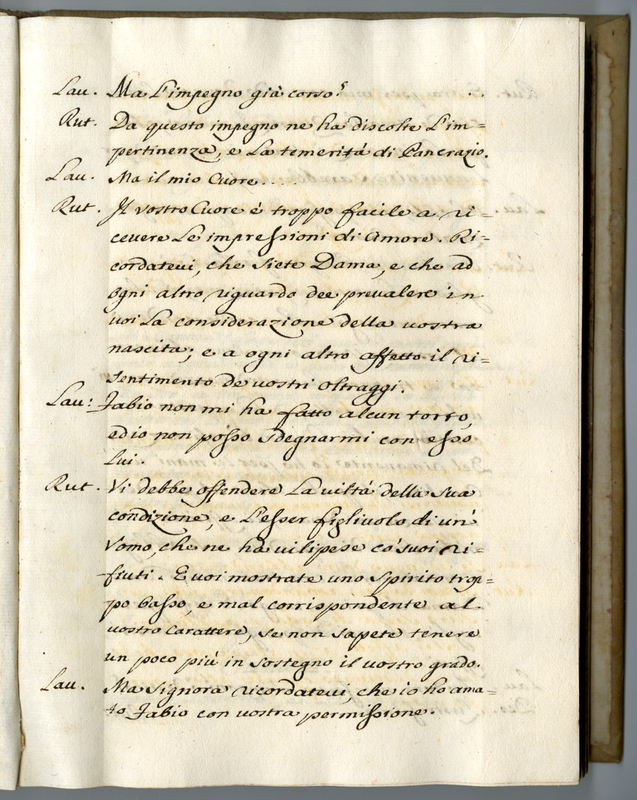 Lau. Ma l'impegno già corso?
Rut. Da questo impegno ne ha disciolte l'im=
pertinenza, e la temerità di Pancrazio.
Lau. Ma il mio Cuore....
Rut. Il vostro Cuore è troppo facile a ri=
cevere le impressioni di Amore. Ri=
cordatevi, che siete Dama, e che ad
ogni altro riguardo dee prevalere in
voi la considerazione della vostra
nascita; e a ogni altro affetto il ri=
sentimento de vostri oltraggi.
Lau: Fabio non mi ha fatto alcun torto,
ed io non posso sdegnarmi con esso
lui.
Rut. Vi debbe offendere la viltà della sua
condizione, e l'esser figlivolo di un'
Vomo, che ne ha vilipese co' suoi ri=
fiuti. E voi mostrate uno spirito trop=
po basso, e mal corrispondente al
vostro Carattere, se non sapete tenere
un poco più in sostegno il vostro grado.
Lau. Ma Signora ricordatevi, che io ho ama=
to Fabio con vostra permissione.